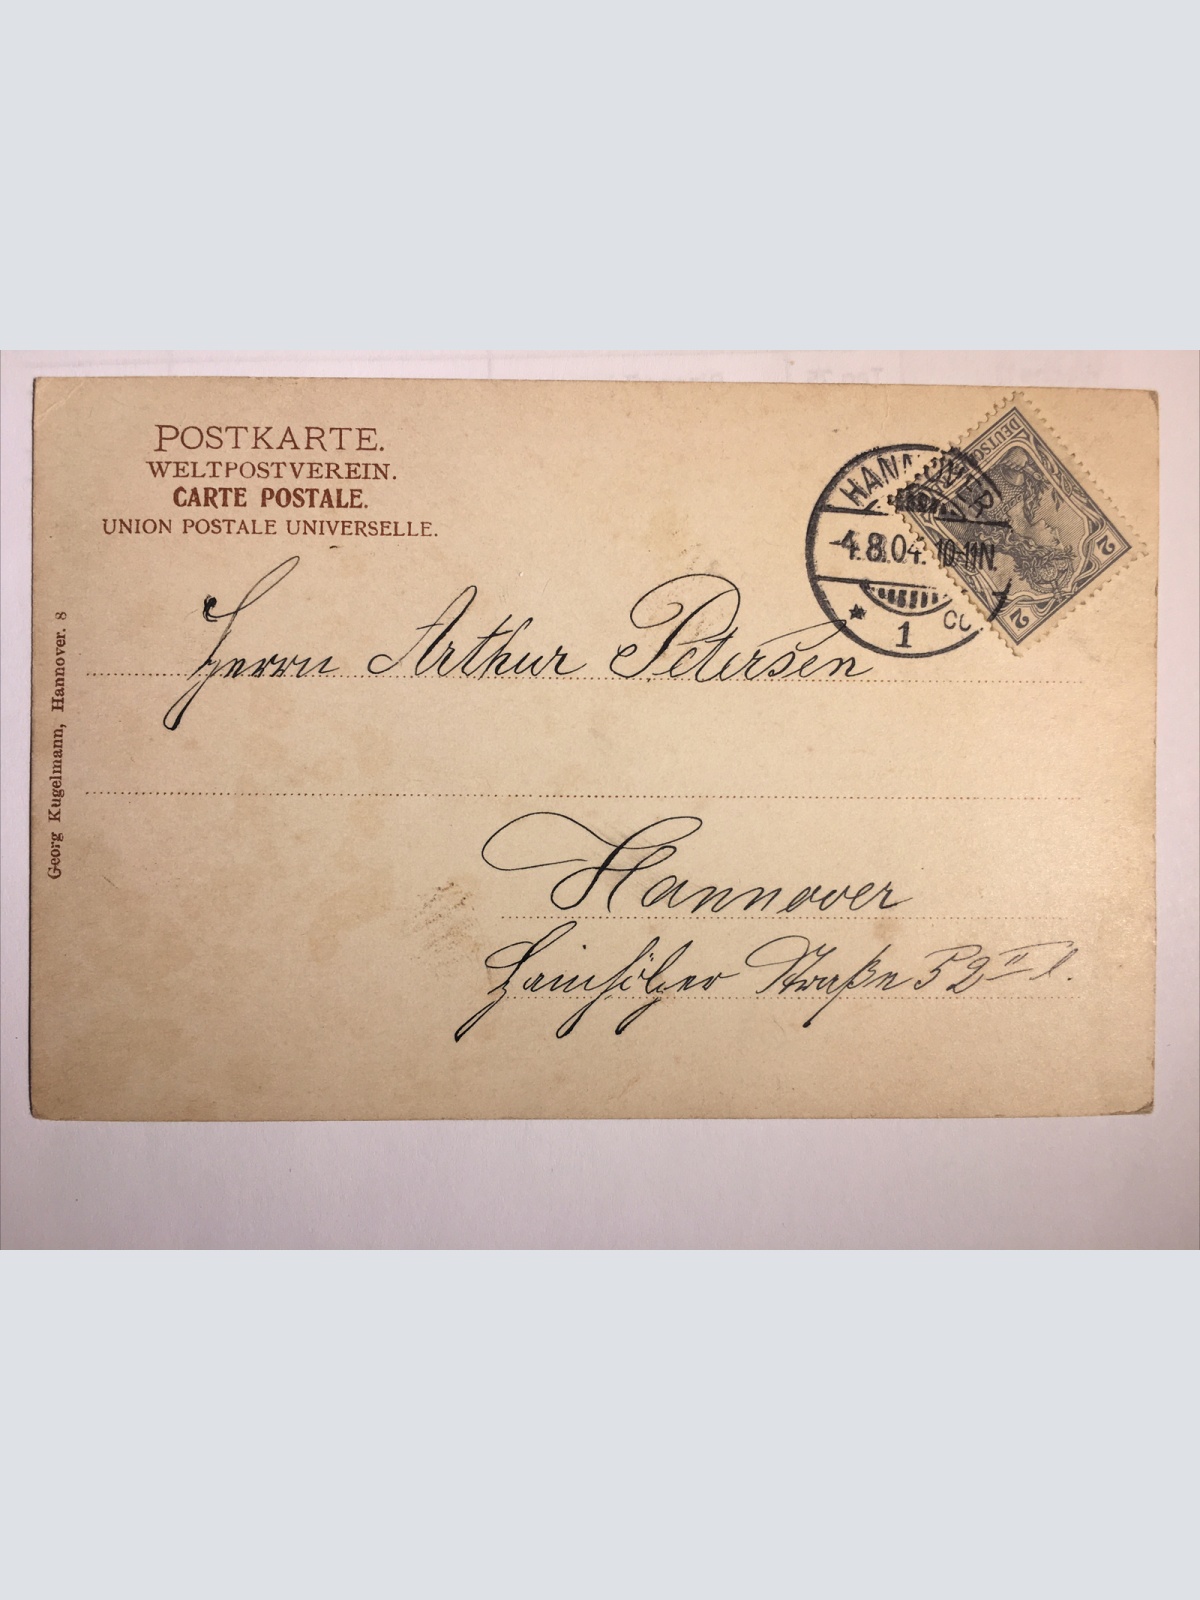 POSTKARTE.
WELTPOSTVEREIN.
CARTE POSTALE.
UNION POSTALE UNIVERSELLE.
HANNOVER
4.8.04. 10-11N.
* 1 CC
DEUTSC
2 2
Herrn Arthur Petersen
Hannover
Hainhölzer Straße 52 II l.
Georg Kugelmann, Hannover. 8